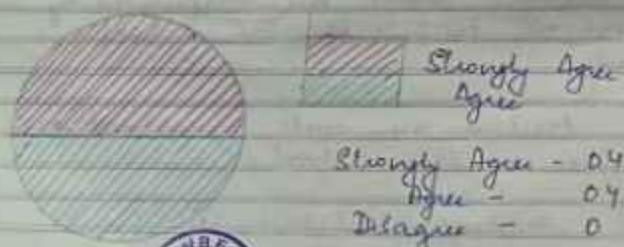 Strongly Agree
Agree
Strongly Agree - 04
Agree - 04
Disagree - 0